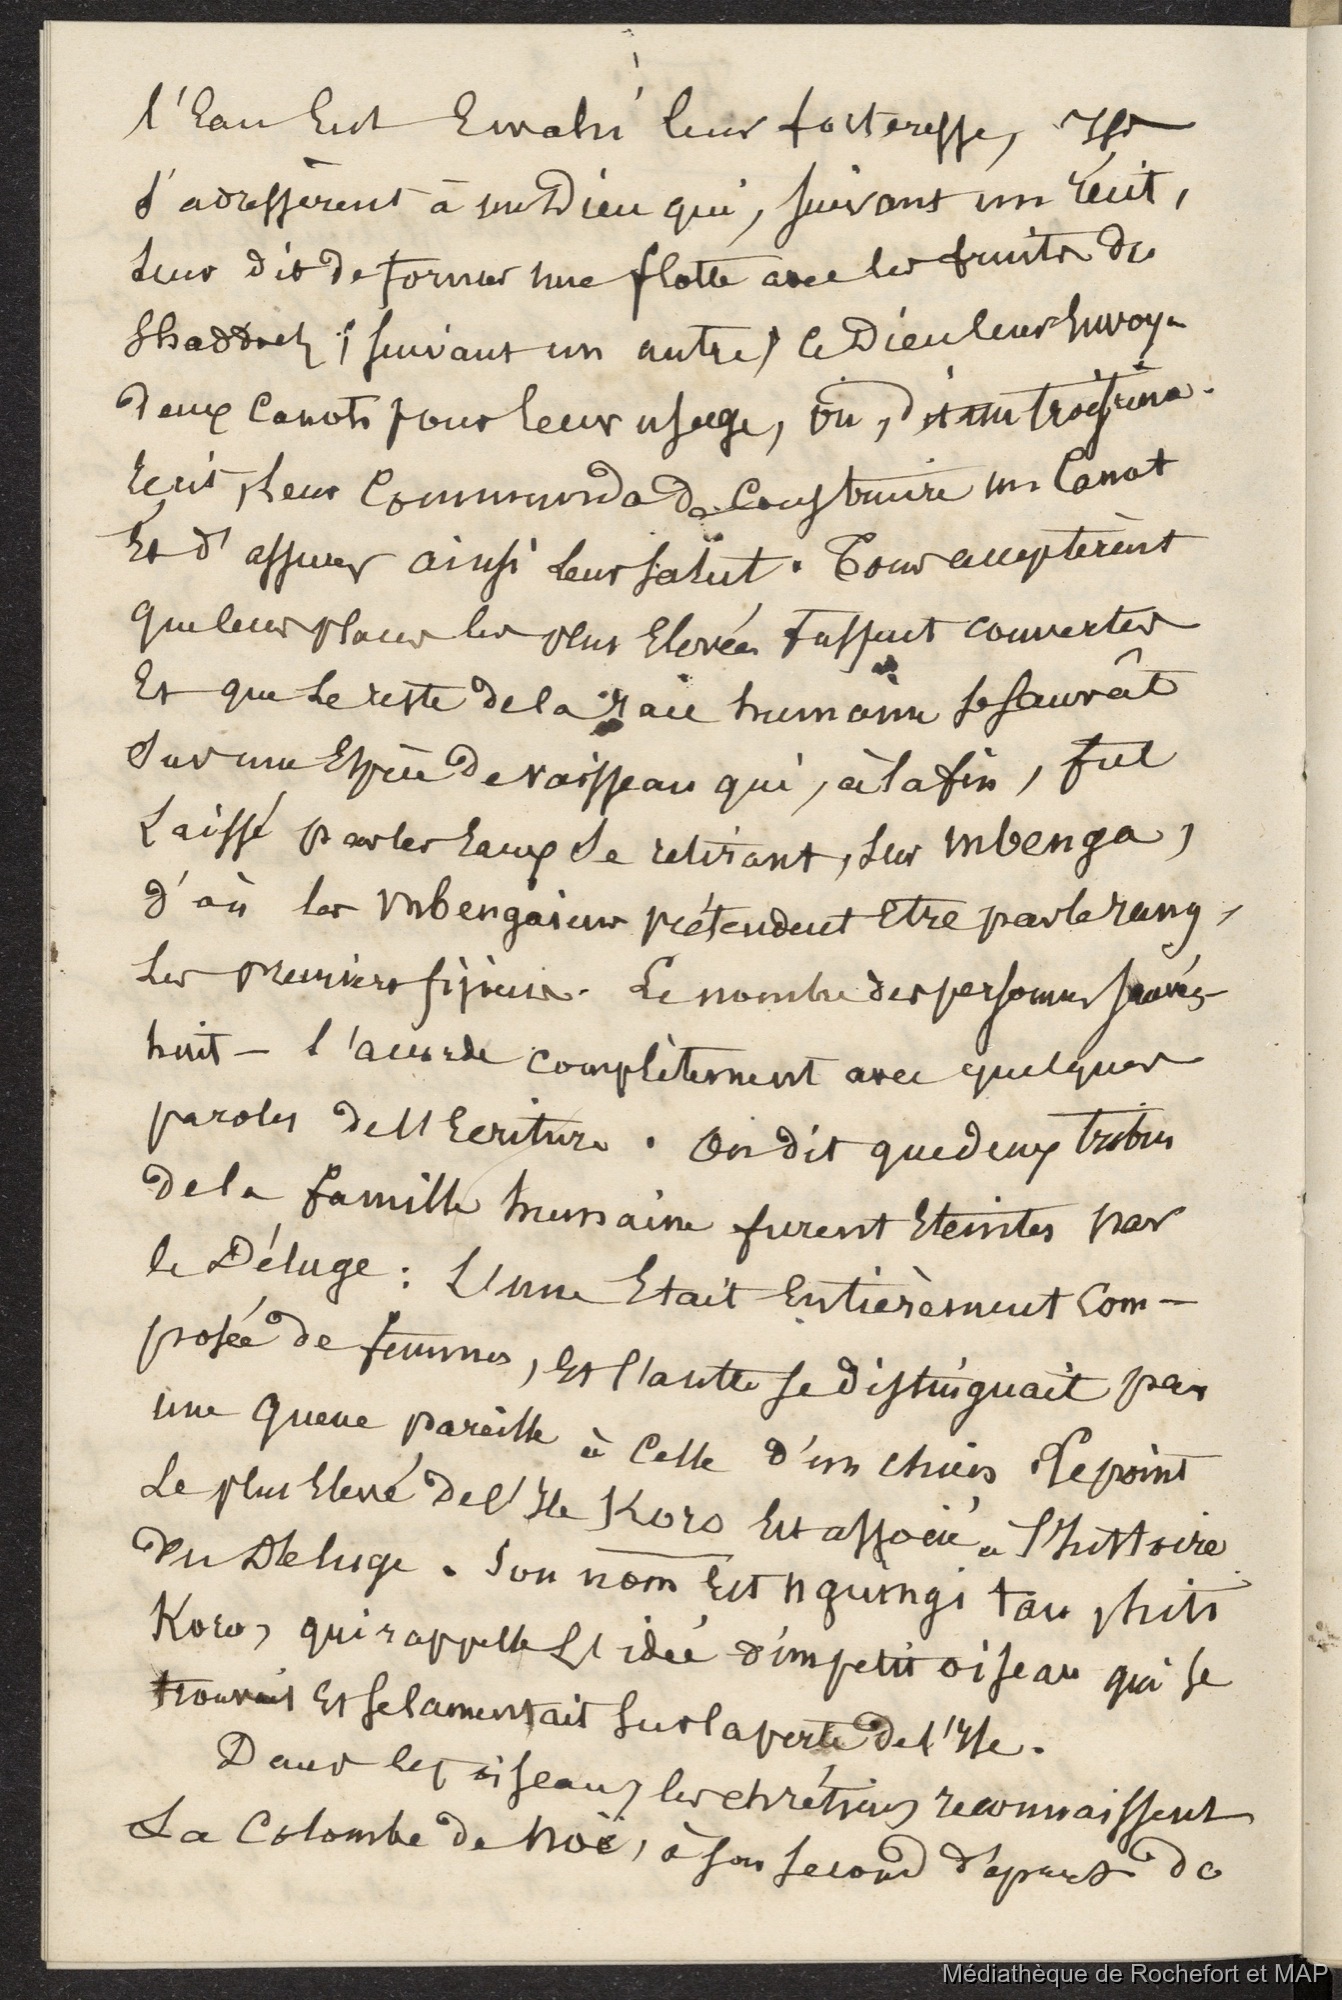 l'Eau Eut Envahi leur forteresse, Ils
s'adressèrent à un Dieu qui, suivant un récit,
leur dit de former une flotte avec les fruits du
Shaddock, (suivant un autre) ce Dieu leur Envoya
deux Canots pour leur usage, ou, dit un troisième
récit, leur Commanda de Construire un Canot
Et d'assurer ainsi leur salut. Tous acceptèrent
que leurs places les plus Elevées fussent couvertes
Et que le reste de la race humaine se sauvât
sur une Espèce de vaisseau qui, à la fin, fut
Laissé par les Eaux se retirant, sur Mbenga,
d'où les Mbengaiens prétendent être par le rang,
les premiers fijiens. Le nombre des personnes sauvées
huit — s'accorde complètement avec quelques
paroles de l'Ecriture. On dit que deux tribus
de la famille humaine furent Eteintes par
le Déluge : L'une Etait Entièrement Com-
posée de femmes, Et l'autre se distinguait par
une queue pareille à Celle d'un chien. Le point
Le plus Elevé de l'Ile Koro Est associé à l'histoire
du Déluge. Son nom Est Nguingi tau phiti
Koro, qui rappelle L'idée d'un petit oiseau qui se
trouvait Et se lamentait sur la perte de l'Ile.
Dans les oiseaux les chrétiens reconnaissent
La Colombe de Noë, à son second départ de
Médiathèque de Rochefort et MAP